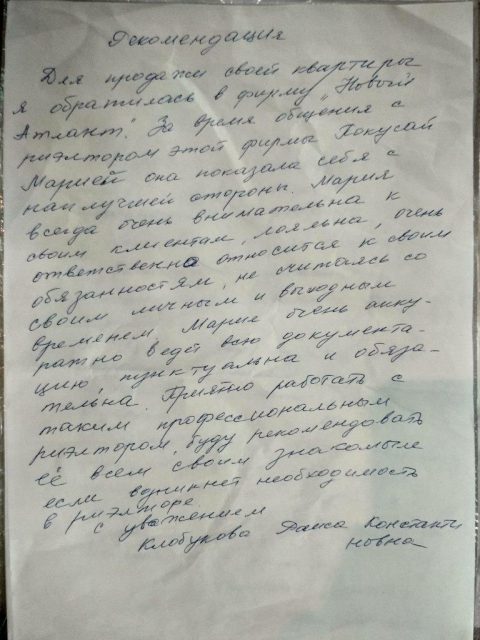 Рекомендация
Для продажи своей квартиры
я обратилась в фирму „Новый
Атлант". За время общения с
риэлтором этой фирмы Кокусай
Марией она показала себя с
наилучшей стороны. Мария
всегда очень внимательна к
своим клиентам, лояльна, очень
ответственна относится к своим
обязанностям, не считаясь со
своим личным и выходным
временем. Мария очень акку-
ратно ведёт всю документа-
цию, пунктуальна и обяза-
тельна. Приятно работать с
таким профессиональным
риэлтором, буду рекомендовать
её всем своим знакомые
если возникнет необходимость
в риэлторе
с уважением
Клобукова Раиса Константи
новна